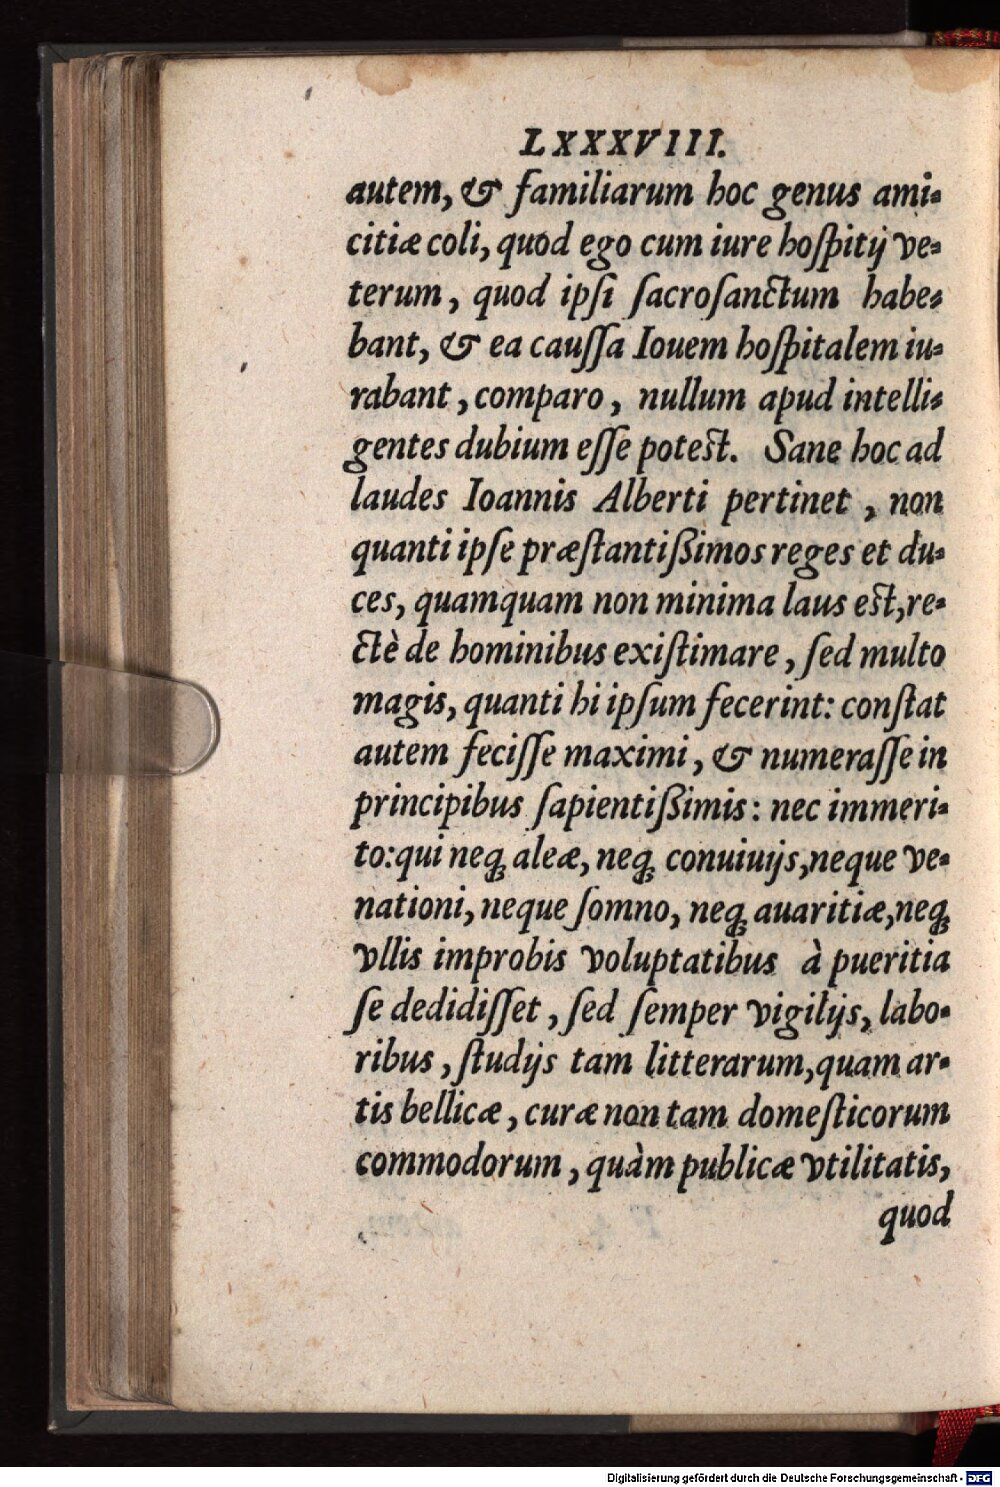 LXXXVIII.
autem, & familiarum hoc genus ami=
citiæ coli, quod ego cum iure hoſpitij ve=
terum, quod ipſi ſacroſanctum habe=
bant, & ea cauſſa Iouem hoſpitalem iu=
rabant, comparo, nullum apud intelli=
gentes dubium eſſe poteſt. Sane hoc ad
laudes Ioannis Alberti pertinet, non
quanti ipſe præſtantißimos reges et du=
ces, quamquam non minima laus eſt, re=
ctè de hominibus exiſtimare, ſed multo
magis, quanti hi ipſum fecerint: conſtat
autem feciſſe maximi, & numeraſſe in
principibus ſapientißimis: nec immeri=
to: qui neqꝫ aleæ, neqꝫ conuiuijs, neque ve=
nationi, neque ſomno, neqꝫ auaritiæ, neqꝫ
vllis improbis voluptatibus à pueritia
ſe dedidiſſet, ſed ſemper vigilijs, labo=
ribus, ſtudijs tam litterarum, quam ar=
tis bellicæ, curæ non tam domeſticorum
commodorum, quàm publicæ vtilitatis,
quod
Digitalisierung gefördert durch die Deutsche Forschungsgemeinschaft - DFG